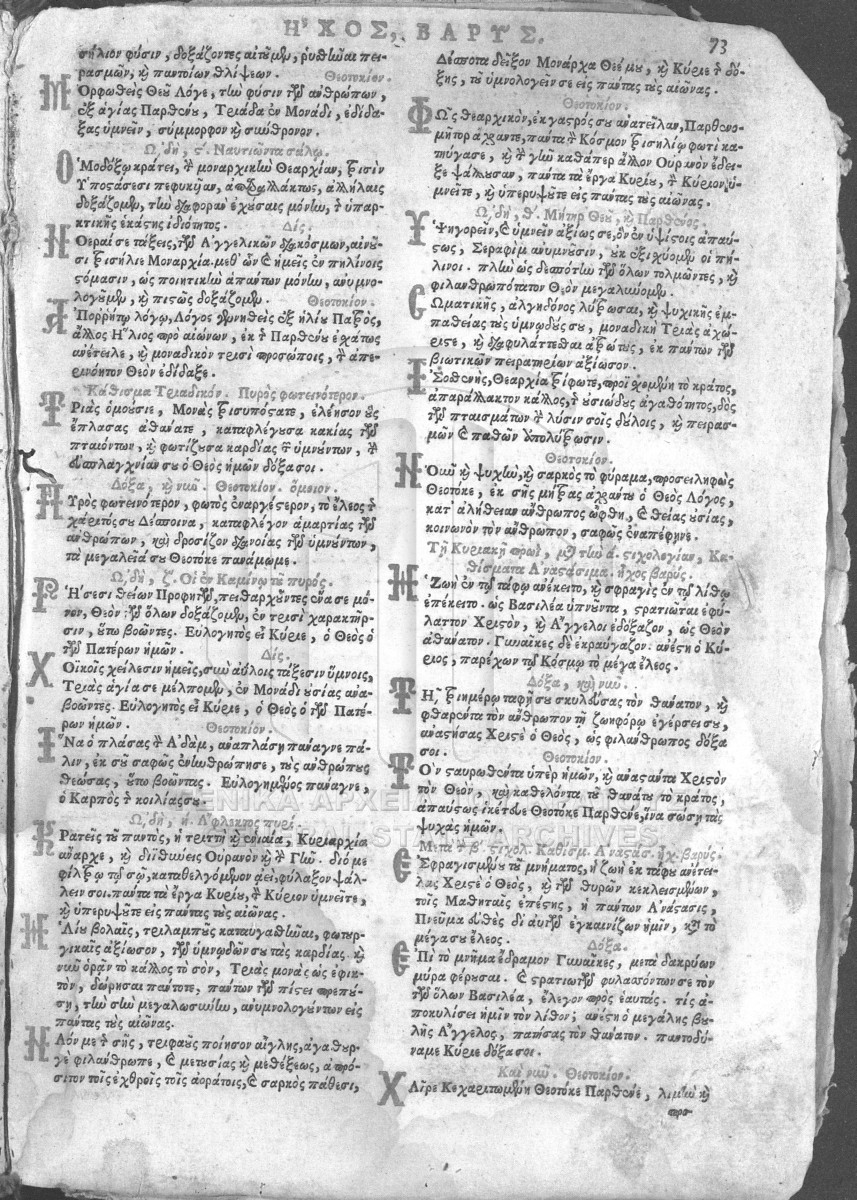 ΗʹΧΟΣ, ΒΑΡΥΣ.
73
σήλιον φύσιν, δοξάζοντες αἰτοῦμεν, ῥυσθῆναι πει-
ρασμῶν, καὶ παντοίων θλίψεων. Θεοτοκίον.
Μορφωθεὶς Θεοῦ Λόγε, τὴν φύσιν τῶν ἀνθρώπων,
ἐξ ἁγίας Παρθένου, Τριάδα ἐν Μονάδι, ἐδίδα-
ξας ὑμνεῖν, σύμμορφον καὶ σύνθρονον.
Ὠδὴ, ϛ. Ναυτιῶντα σάλῳ.
Ὁμοδόξῳ κράτει, τὴν μοναρχικὴν Θεαρχίαν, τρισὶν
Ὑποστάσεσι πεφυκυῖαν, ἀπαραλλάκτως, ἀλλήλαις
δοξάζομεν, τὴν διαφορὰν ἐχούσαις μόνην, τῆς ὑπαρ-
κτικῆς ἑκάστης ἰδιότητος. Δίς.
Νοεραί σε τάξεις, τῶν Ἀγγελικῶν διακόσμων, αἰνοῦ-
σι τρισήλιε Μοναρχία. μεθ' ὧν καὶ ἡμεῖς ἐν πηλίνοις
στόμασιν, ὡς ποιητικὴν ἁπάντων μόνην, ἀνυμνο-
λογοῦμεν, καὶ πιστῶς δοξάζομεν. Θεοτοκίον.
Ἀπορρήτῳ λόγῳ, Λόγος γεννηθεὶς ἐξ ἡλίου Πατρὸς,
ἄλλος Ἥλιος πρὸ αἰώνων, ἐκ τῆς Παρθένου ἐσχάτως
ἀνέτειλε, καὶ μοναδικὸν τρισὶ προσώποις, τὸν ἀπε-
ρινόητον Θεὸν ἐδίδαξε.
Κάθισμα Τριαδικόν. Πυρὸς φωτεινότερον.
Τριὰς ὁμοούσιε, Μονὰς τρισυπόστατε, ἐλέησον οὓς
ἔπλασας ἀθάνατε, καταφλέγουσα κακίας τῶν
πταιόντων, καὶ φωτίζουσα καρδίας τῶν ὑμνούντων, τὴν
εὐσπλαγχνίαν σου ὁ Θεὸς ἡμῶν δόξα σοι.
Δόξα, καὶ νῦν. Θεοτοκίον. ὅμοιον.
Πυρὸς φωτεινότερον, φωτὸς ἐναργέστερον, τὸ ἔλεος τῆς
χάριτός σου Δέσποινα, καταφλέγον ἁμαρτίας τῶν
ἀνθρώπων, καὶ δροσίζον διανοίας τῶν ὑμνούντων,
τὰ μεγαλεῖά σου Θεοτόκε πανάμωμε.
Ὠδὴ, ζ. Οἱ ἐν Καμίνῳ τοῦ πυρός.
Ῥήσεσι θείων Προφητῶν, πειθαρχοῦντες ἕνα σε μό-
νον, Θεὸν τῶν ὅλων δοξάζομεν, ἐν τρισὶ χαρακτῆρ-
σιν, οὕτω βοῶντες. Εὐλογητὸς εἶ Κύριε, ὁ Θεὸς ὁ
τῶν Πατέρων ἡμῶν. Δίς.
Χοϊκοῖς χείλεσιν ἡμεῖς, σὺν ἀΰλοις τάξεσιν ὕμνοις,
Τριὰς ἁγία σε μέλπομεν, ἐν Μονάδι οὐσίας ἀνα-
βοῶντες. Εὐλογητὸς εἶ Κύριε, ὁ Θεὸς ὁ τῶν Πατέ-
ρων ἡμῶν. Θεοτοκίον.
Ἵνα ὁ πλάσας τὸν Ἀδὰμ, ἀναπλάσῃ πάναγνε πά-
λιν, ἐκ σοῦ σαφῶς ἐνηνθρώπησε, τοὺς ἀνθρώπους
θεώσας, οὕτω βοῶντας. Εὐλογημένος πάναγνε,
ὁ Καρπὸς τῆς κοιλίας σου.
Ὠδὴ, η. Ἄφλεκτος πυρί.
Κρατεῖς τοῦ παντὸς, ἡ τριττὴ καὶ ἑνιαία, Κυριαρχία
ἄναρχε, καὶ διϊθύνεις Οὐρανὸν καὶ Γῆν. διό με
φίλτρῳ τῷ σῷ, καταθελγόμενον ἀεὶ, φύλαξον ψάλ-
λειν σοι. πάντα τὰ ἔργα Κυρίου, τὸν Κύριον ὑμνεῖτε,
καὶ ὑπερυψοῦτε εἰς πάντας τοὺς αἰῶνας.
Ἡλίου βολαῖς, τριλαμποῦς καταυγασθῆναι, φωτουρ-
γικαῖς ἀξίωσον, τῶν ὑμνῳδῶν σου τὰς καρδίας. καὶ
νῦν ὁρᾷν τὸ κάλλος τὸ σὸν, Τριὰς μονὰς ὡς ἐφικ-
τὸν, δώρησαι πάντοτε, πάντων τῶν πίστει πρεπού-
σῃ, τὴν σὴν μεγαλωσύνην, ἀνυμνολογούντων εἰς
πάντας τοὺς αἰῶνας.
Ναόν με τῆς σῆς, τριφαοῦς ποίησον αἴγλης, ἀγαθουρ-
γὲ φιλάνθρωπε, καὶ μετουσίας καὶ μεθέξεως, ἀπρό-
σιτον τοῖς ἐχθροῖς τοῖς ἀοράτοις, καὶ σαρκὸς πάθεσι,
Δέσποτα δεῖξον Μονάρχα Θεέ μου, καὶ Κύριε τῆς δό-
ξης, τοῦ ὑμνολογεῖν σε εἰς πάντας τοὺς αἰῶνας.
Θεοτοκίον.
Φῶς θεαρχικὸν, ἐκ γαστρός σου ἀνατεῖλαν, Παρθενο-
μῆτορ ἄχραντε, πάντα τὸν Κόσμον τρισηλίῳ φωτὶ κα-
τηύγασε, καὶ τὴν γῆν καθάπερ ἄλλον Οὐρανὸν ἔδει-
ξε ψάλλουσαν, πάντα τὰ ἔργα Κυρίου, τὸν Κύριον ὑ-
μνεῖτε, καὶ ὑπερυψοῦτε εἰς πάντας τοὺς αἰῶνας.
Ὠδὴ, θ. Μήτηρ Θεοῦ, καὶ Παρθένος.
Ὑψηγορεῖν, καὶ ὑμνεῖν ἀξίως σε, ὃν ἐν ὑψίστοις ἀπαύ-
στως, Σεραφὶμ ἀνυμνοῦσιν, οὐκ ἐξισχύομεν οἱ πή-
λινοι. πλὴν ὡς δεσπότην τῶν ὅλων τολμῶντες, καὶ
φιλανθρωπότατον Θεὸν μεγαλύνομεν.
Σωματικῆς, ἀλγηδόνος λύτρωσαι, καὶ ψυχικῆς ἐμ-
παθείας τοὺς ὑμνῳδούς σου, μοναδικὴ Τριὰς ἀχώ-
ριστε, καὶ διαφυλάττεσθαι ἀτρώτους, ἐκ πάντων τῶν
βιωτικῶν πειρατηρίων ἀξίωσον.
Ἰσοσθενὴς, Θεαρχία τρίφωτε, ἡ περιεχομένη τὸ κράτος,
ἀπαράλλακτον κάλλος, τῆς οὐσιώδους ἀγαθότητος, δὸς
τῶν πταισμάτων τὴν λύσιν σοῖς δούλοις, καὶ πειρασ-
μῶν καὶ παθῶν ἀπολύτρωσιν.
Θεοτοκίον.
Νοῦν καὶ ψυχὴν, καὶ σαρκὸς τὸ φύραμα, προσειληφὼς
Θεοτόκε, ἐκ σῆς μήτρας ἀχράντου ὁ Θεὸς Λόγος,
κατ' ἀλήθειαν ἄνθρωπος ὤφθη, καὶ θείας οὐσίας,
κοινωνὸν τὸν ἄνθρωπον, σαφῶς ἐναπέφηνε.
Τῇ Κυριακῇ πρωῒ, μετὰ τὴν ά. στιχολογίαν, Κα-
θίσματα Ἀναστάσιμα. ἦχος βαρύς.
Ἡ Ζωὴ ἐν τῷ τάφῳ ἀνέκειτο, καὶ σφραγὶς ἐν τῷ λίθῳ
ἐπέκειτο. ὡς Βασιλέα ὑπνοῦντα, στρατιῶται ἐφύ-
λαττον Χριστὸν, καὶ Ἄγγελοι ἐδόξαζον, ὡς Θεὸν
ἀθάνατον. Γυναῖκες δὲ ἐκραύγαζον. ἀνέστη ὁ Κύ-
ριος, παρέχων τῷ Κόσμῳ τὸ μέγα ἔλεος.
Δόξα, καὶ νῦν.
Τῇ τριημέρῳ ταφῇ σου σκυλεύσας τὸν θάνατον, καὶ
φθαρέντα τὸν ἄνθρωπον τῇ ζωηφόρῳ ἐγέρσει σου,
ἀναστήσας Χριστὲ ὁ Θεὸς, ὡς φιλάνθρωπος δόξα
σοι. Θεοτοκίον.
Τὸν σταυρωθέντα ὑπὲρ ἡμῶν, καὶ ἀναστάντα Χριστὸν
τὸν Θεὸν, καὶ καθελόντα τοῦ θανάτου τὸ κράτος,
ἀπαύστως ἱκέτευε Θεοτόκε Παρθένε, ἵνα σώσῃ τὰς
ψυχὰς ἡμῶν.
Μετὰ τὴν β. στιχολ. Καθίσμ. Ἀναστάσ. ἦχ. βαρύς.
Ἐσφραγισμένου τοῦ μνήματος, ἡ ζωὴ ἐκ τάφου ἀνέτει-
λας Χριστὲ ὁ Θεὸς, καὶ τῶν θυρῶν κεκλεισμένων,
τοῖς Μαθηταῖς ἐπέστης, ἡ πάντων Ἀνάστασις,
Πνεῦμα εὐθὲς δι' αὐτῶν ἐγκαινίζων ἡμῖν, κατὰ τὸ
μέγα σου ἔλεος. Δόξα.
Ἐπὶ τὸ μνῆμα ἔδραμον Γυναῖκες, μετὰ δακρύων
μύρα φέρουσαι. καὶ στρατιωτῶν φυλασσόντων σε τὸν
τῶν ὅλων Βασιλέα, ἔλεγον πρὸς ἑαυτάς. τίς ἀ-
ποκυλίσει ἡμῖν τὸν λίθον; ἀνέστη ὁ μεγάλης βου-
λῆς Ἄγγελος, πατήσας τὸν θάνατον. παντοδύ-
ναμε Κύριε δόξα σοι.
Καὶ νῦν. Θεοτοκίον.
Χαῖρε Κεχαριτωμένη Θεοτόκε Παρθένε, λιμὴν καὶ
προ-